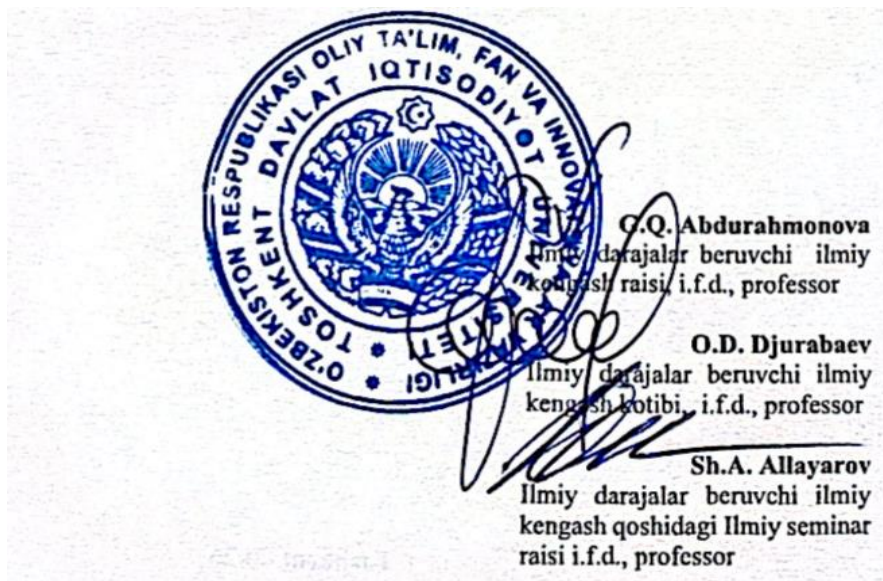 O'ZBEKISTON RESPUBLIKASI OLIY TA'LIM, FAN VA INNOVATSIYALAR VAZIRLIGI
TOSHKENT DAVLAT IQTISODIYOT UNIVERSITETI
G.Q. Abdurahmonova
Ilmiy darajalar beruvchi ilmiy
kengash raisi, i.f.d., professor
O.D. Djurabaev
Ilmiy darajalar beruvchi ilmiy
kengash kotibi, i.f.d., professor
Sh.A. Allayarov
Ilmiy darajalar beruvchi ilmiy
kengash qoshidagi Ilmiy seminar
raisi i.f.d., professor